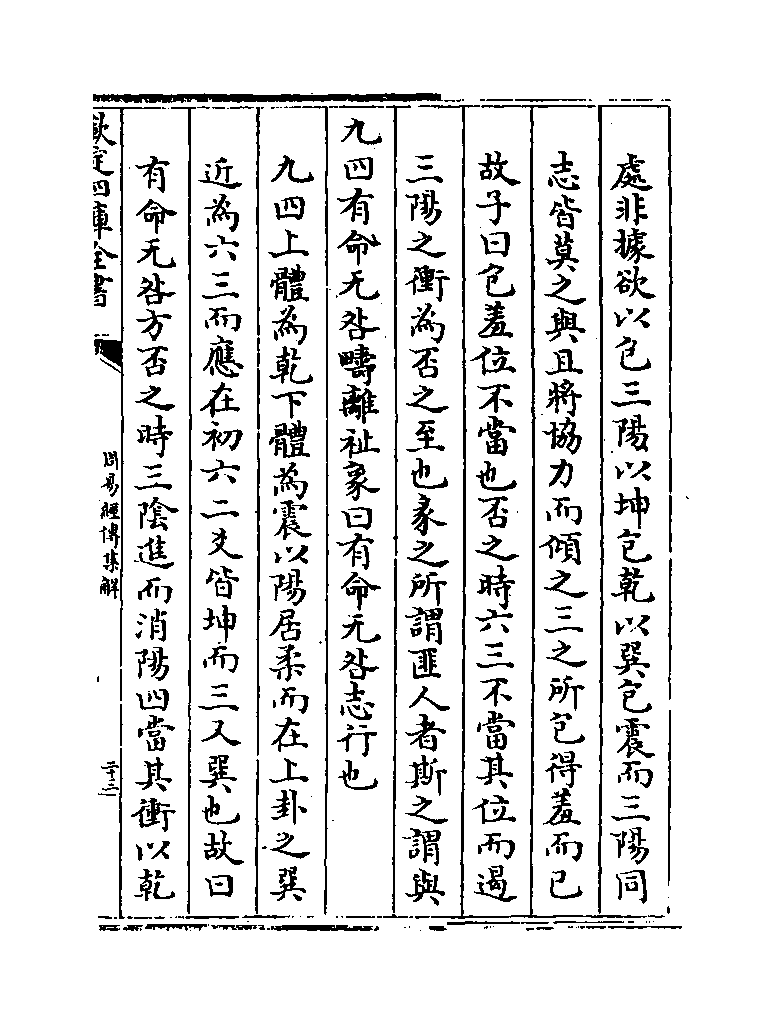 處非據欲以包三陽以坤包乾以巽包震而三陽同
志皆莫之與且將協力而傾之三之所包得羞而已
故子曰包羞位不當也否之時六三不當其位而遏
三陽之衝為否之至也彖之所謂匪人者斯之謂與
九四有命无咎疇離祉象曰有命无咎志行也
九四上體為乾下體為震以陽居柔而在上卦之巽
近為六三而應在初六二爻皆坤而三又巽也故曰
有命无咎方否之時三陰進而消陽四當其衝以乾
欽定四庫全書
周易經傳集解
二十三